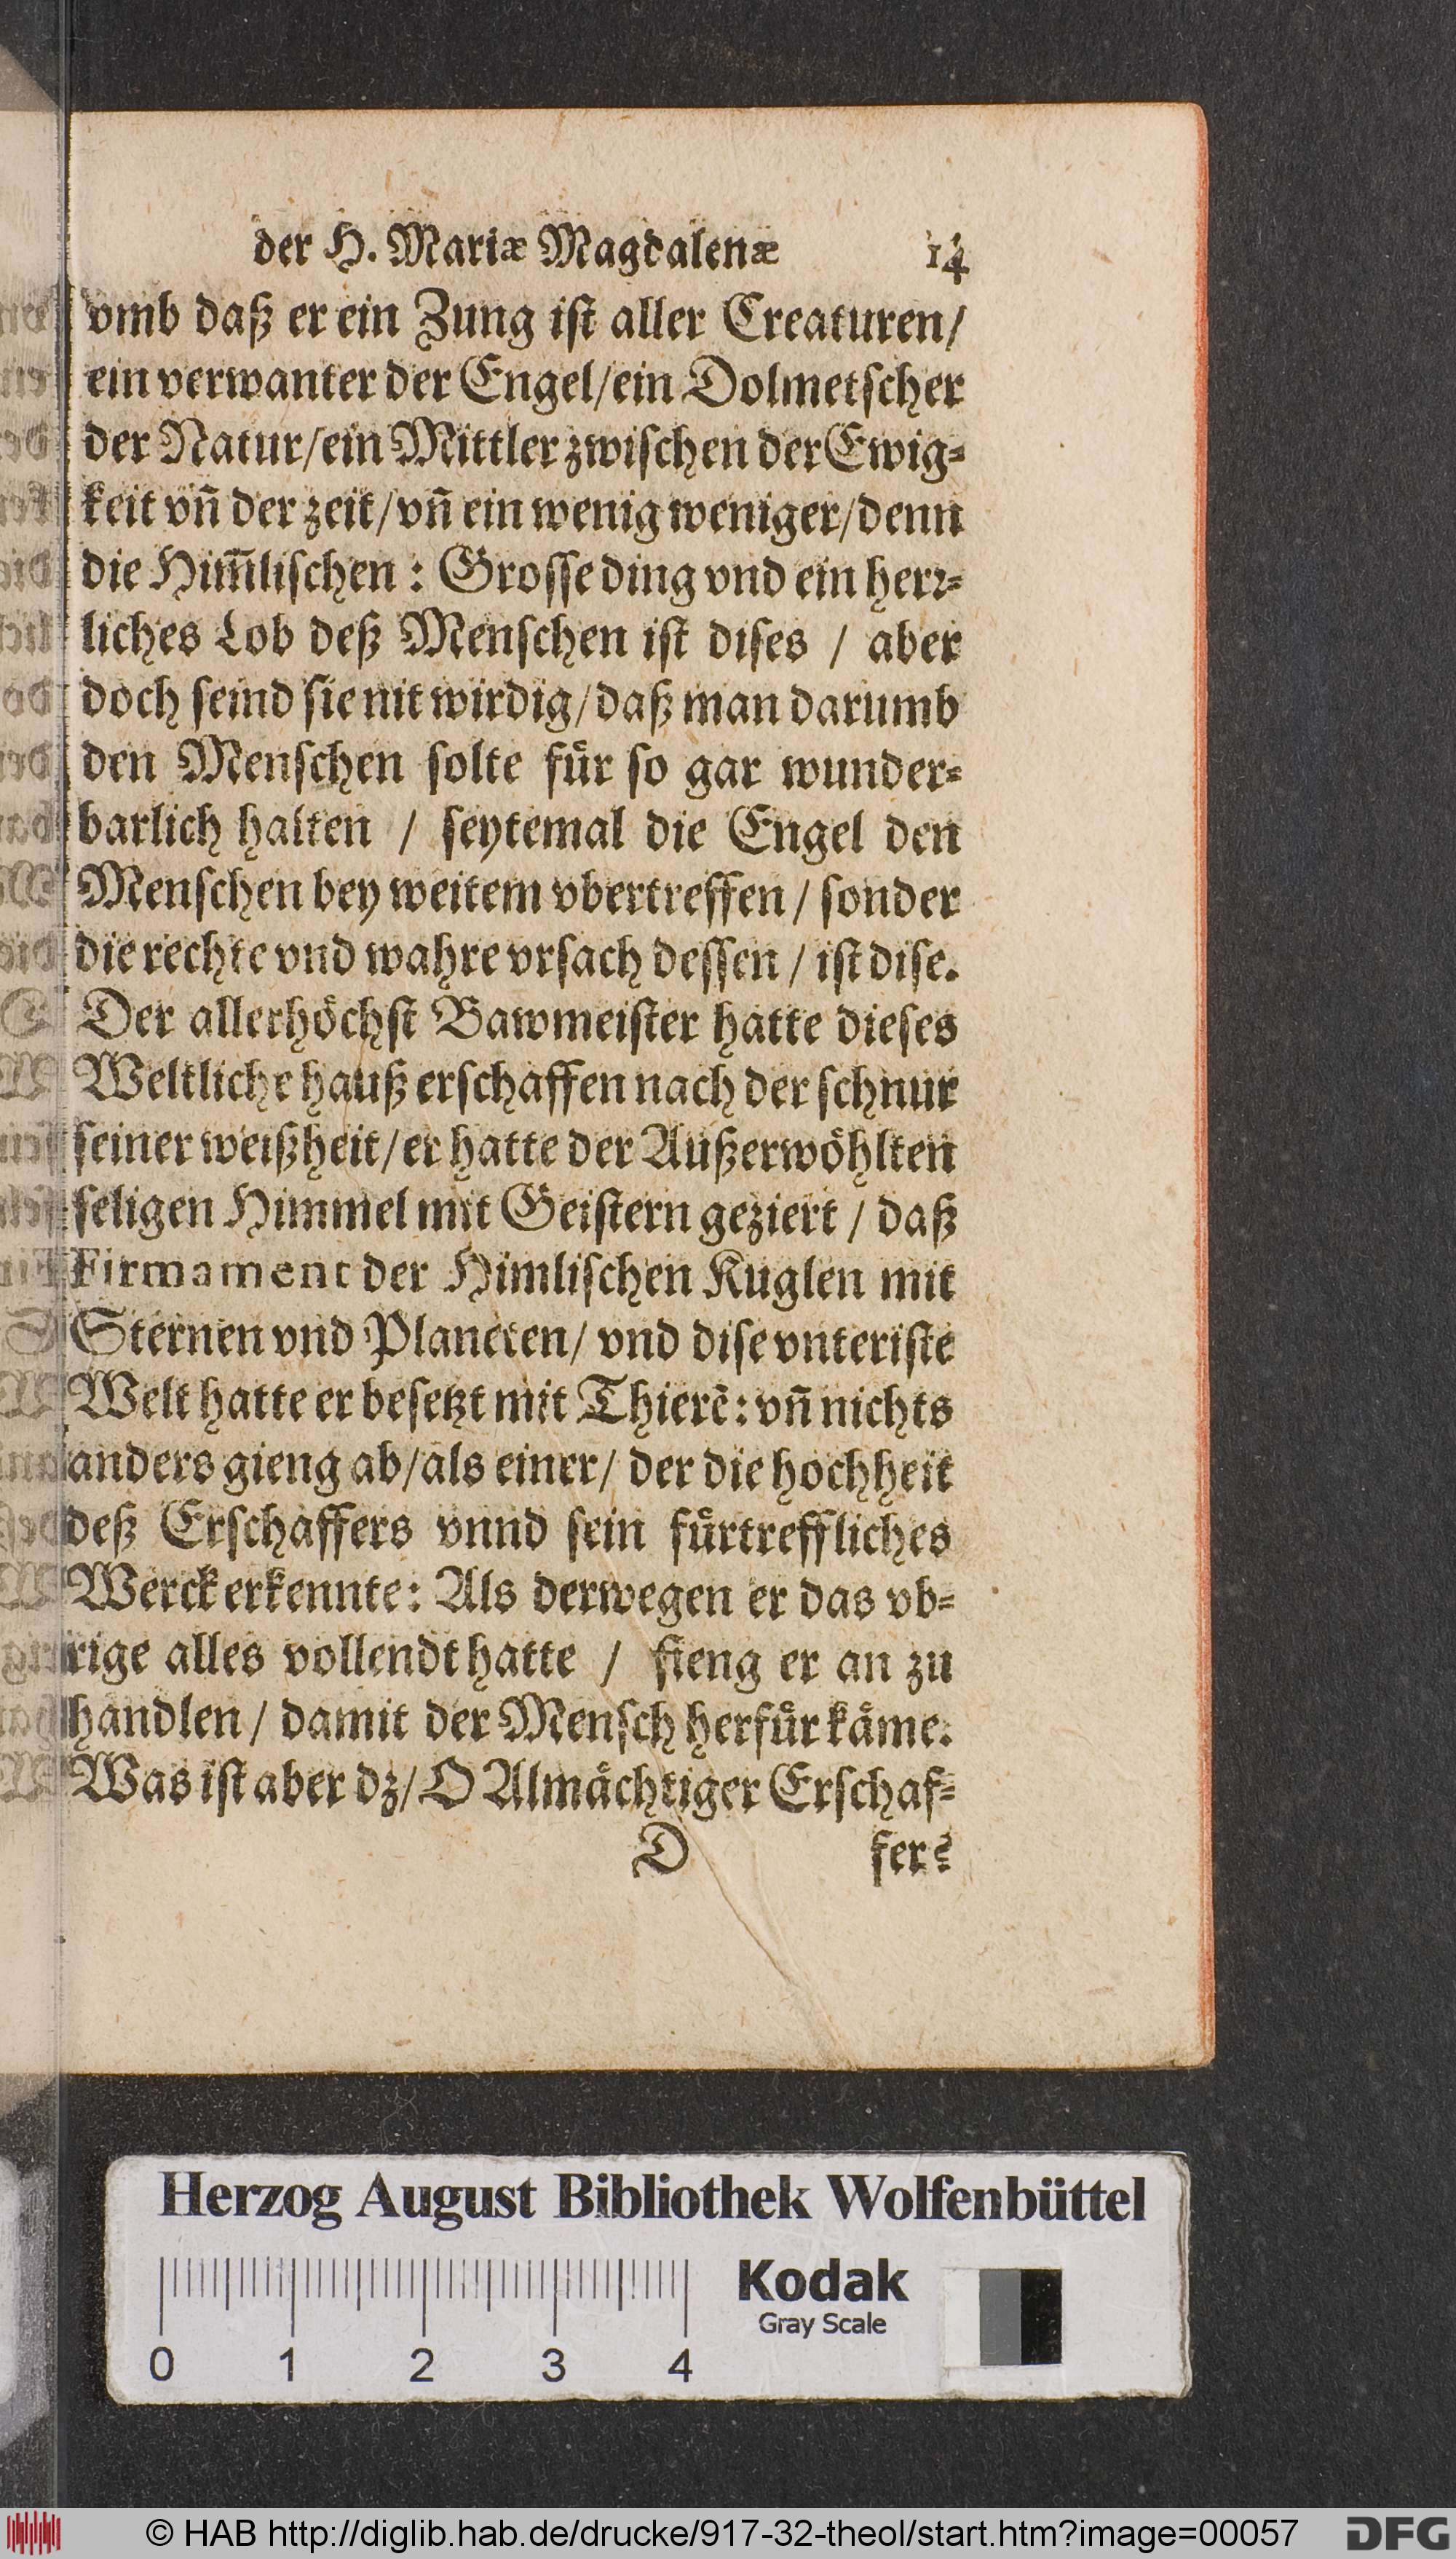 der H. Mariæ Magdalenæ 14
vmb daß er ein Zung ist aller Creaturen/
ein verwanter der Engel/ein Dolmetscher
der Natur/ein Mittler zwischen der Ewig-
keit vñ der zeit/vñ ein wenig weniger/denn
die Him̃lischen : Grosse ding vnd ein herr-
liches Lob deß Menschen ist dises / aber
doch seind sie nit wirdig/daß man darumb
den Menschen solte fuͤr so gar wunder-
barlich halten / seytemal die Engel den
Menschen bey weitem vbertreffen / sonder
die rechte vnd wahre vrsach dessen / ist dise.
Der allerhoͤchst Bawmeister hatte dieses
Weltliche hauß erschaffen nach der schnur
seiner weißheit/er hatte der Außerwoͤhlten
seligen Himmel mit Geistern geziert / daß
Firmament der Himlischen Kuglen mit
Sternen vnd Planeten/ vnd dise vnteriste
Welt hatte er besetzt mit Thierẽ: vñ nichts
anders gieng ab/als einer/ der die hochheit
deß Erschaffers vnnd sein fuͤrtreffliches
Werck erkennte: Als derwegen er das vb-
rige alles vollendt hatte / fieng er an zu
handlen / damit der Mensch herfuͤr kaͤme.
Was ist aber dz/ O Almaͤchtiger Erschaf-
D fer?
Herzog August Bibliothek Wolfenbüttel
Kodak
Gray Scale
0 1 2 3 4
© HAB http://diglib.hab.de/drucke/917-32-theol/start.htm?image=00057
DFG